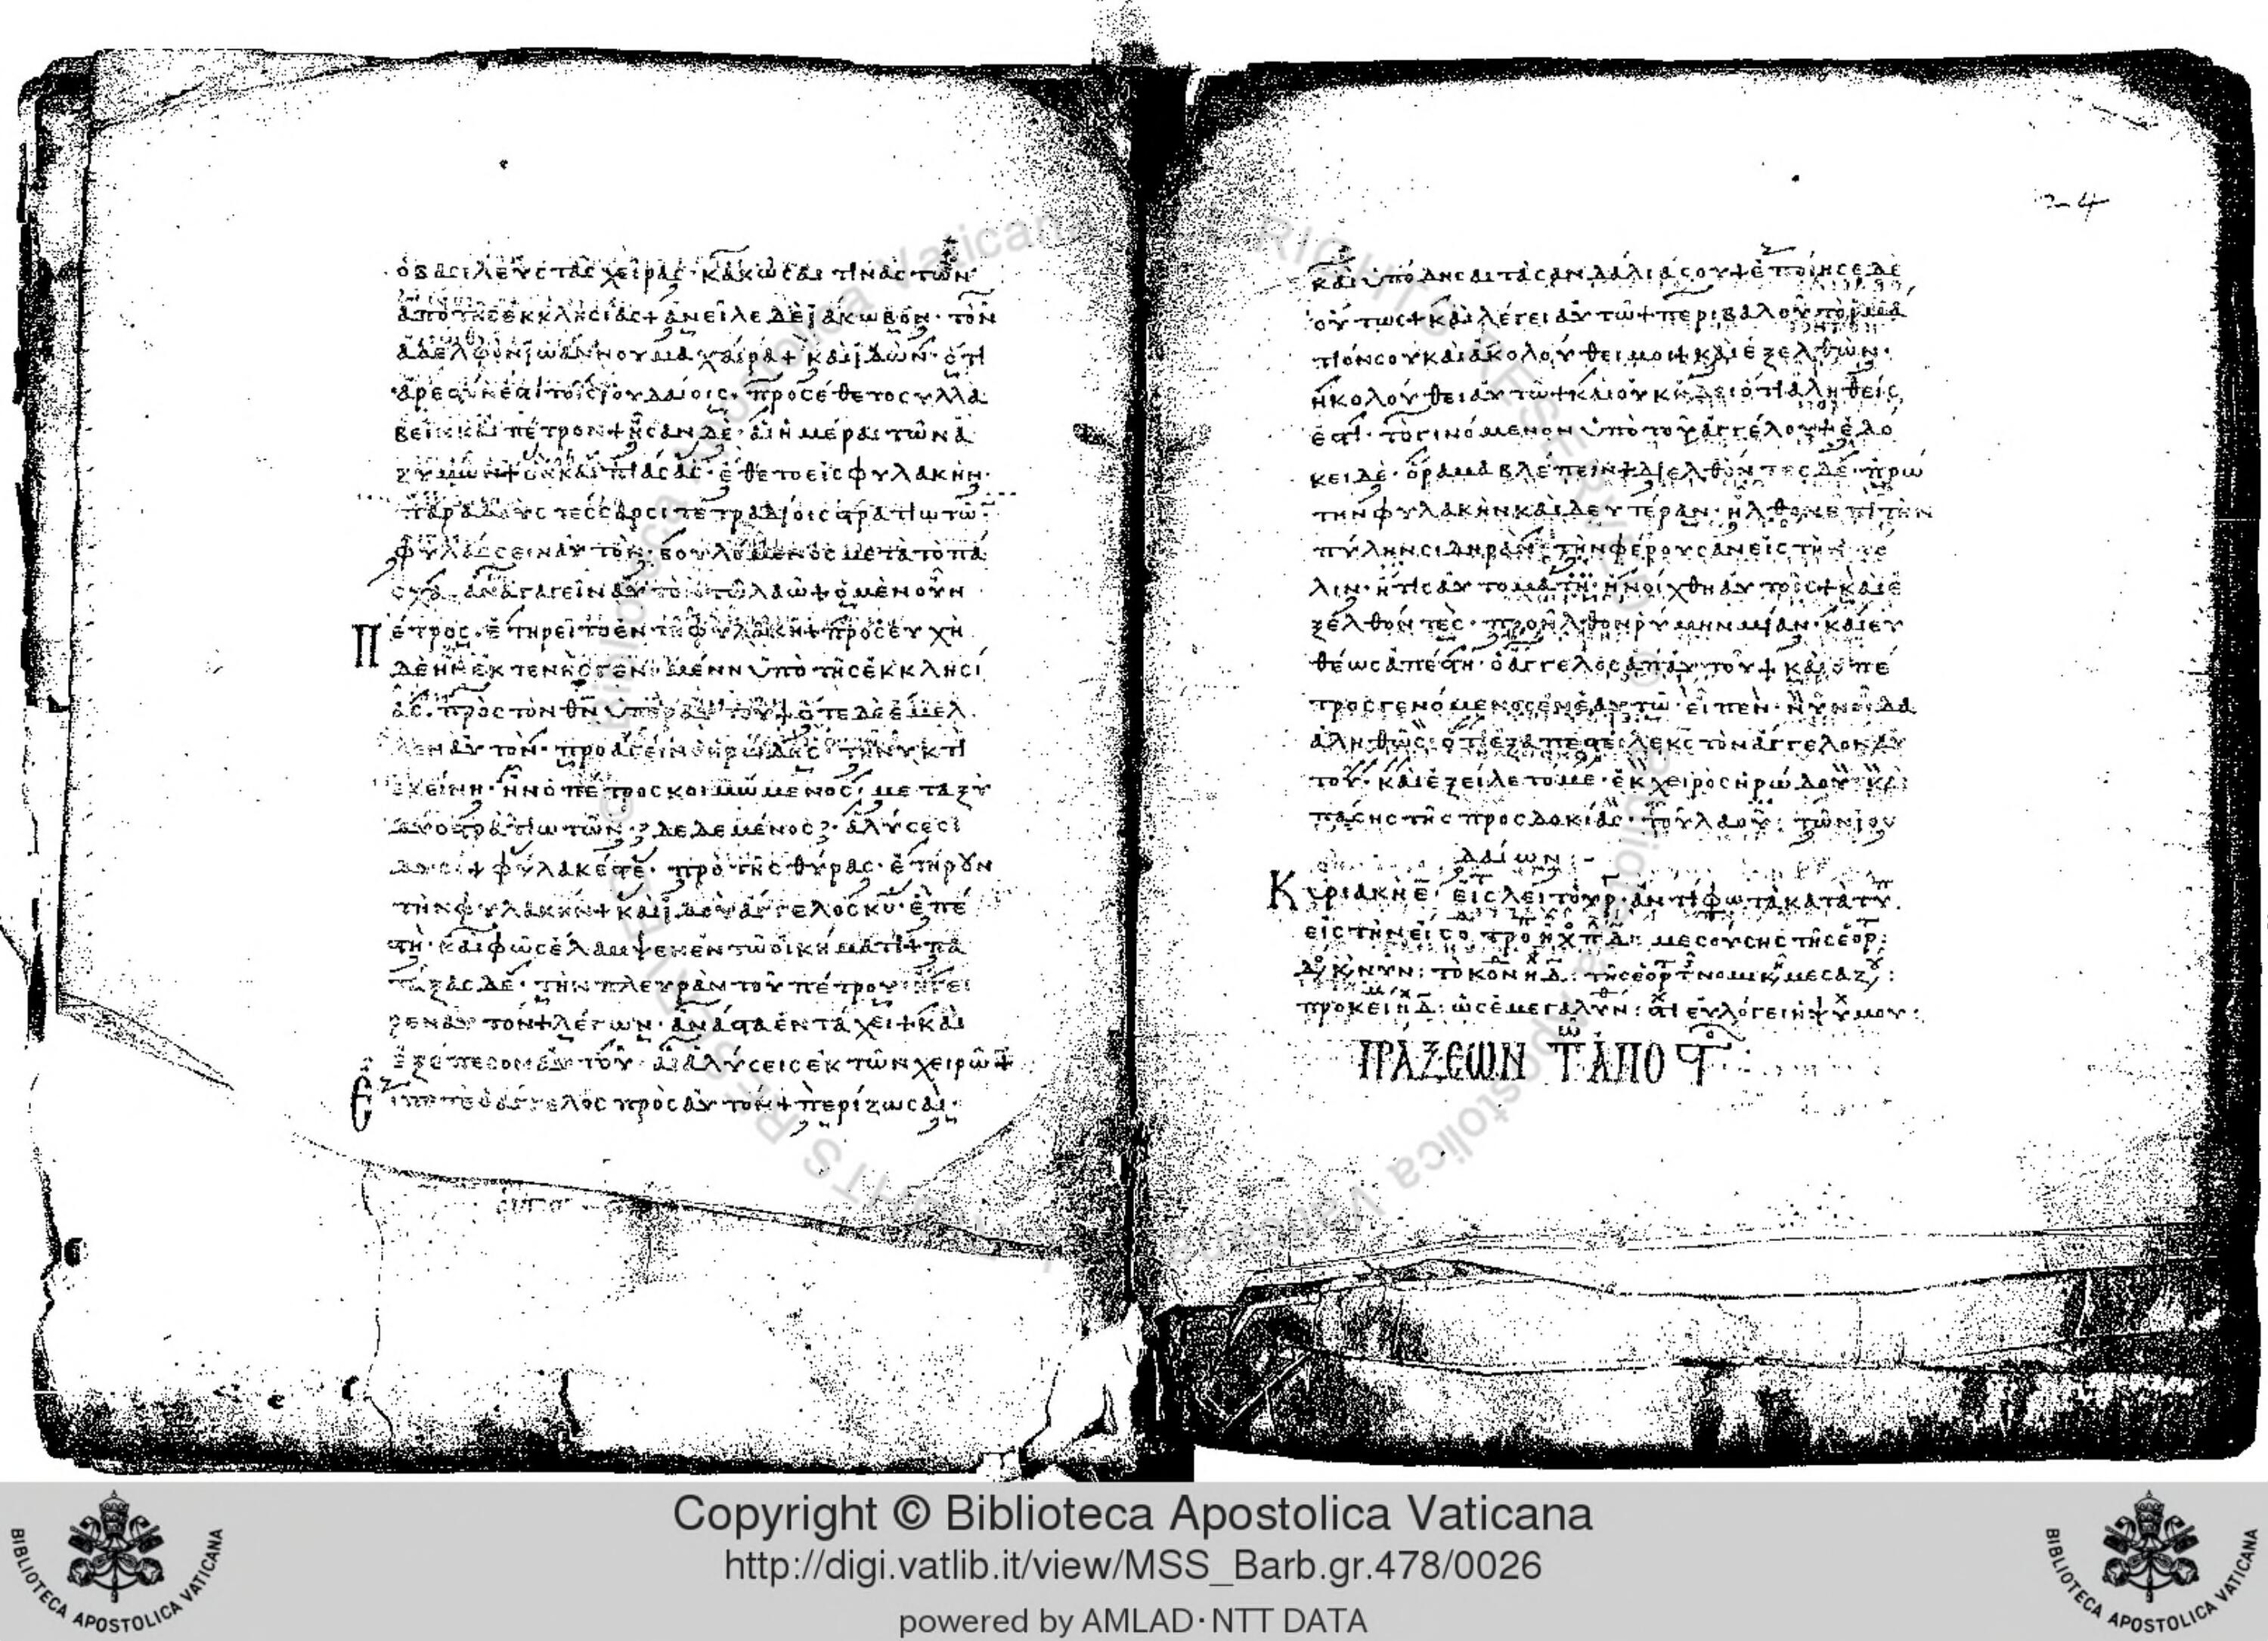 ὁ βασιλεὺς τὰς χεῖρας· κακῶσαί τινας τῶν
ἀπὸ τῆς ἐκκλησίας + ἀνεῖλε δὲ ἰάκωβον· τὸν
ἀδελφὸν ἰωάννου μαχαίρα + καὶ ἰδὼν· ὅτι
ἀρεστόν ἐστι τοῖς ἰουδαίοις· προσέθετο συλλα
βεῖν καὶ πέτρον + ἦσαν δὲ· αἱ ἡμέραι τῶν ἀ
ζύμων + ὃν καὶ πιάσας· ἔθετο εἰς φυλακήν·
παραδοὺς τέσσαρσι τετραδίοις στρατιωτῶ
φυλάσσειν αὐτόν· βουλόμενος μετὰ τὸ πά
σχα ἀναγαγεῖν αὐτὸν τῶ λαῶ + ὁ μὲν οὖν
Πέτρος· ἐτηρεῖτο ἐν τῆ φυλακῆ + προσευχὴ
δὲ ἦν ἐκτενὴς γενομένη ὑπὸ τῆς ἐκκλησί
ας· πρὸς τὸν θν ὑπὲρ αὐτοῦ + ὅτε δὲ ἔμελ
λεν αὐτὸν· προάγειν ὁ ἡρώδης· τῆ νυκτὶ
ἐκείνη· ἦν ὁ πέτρος κοιμώμενος· μεταξὺ
δύο στρατιωτῶν· δεδεμένος· ἁλύσεσι
δυσὶ + φύλακές τε· πρὸ τῆς θύρας· ἐτήρουν
τὴν φυλακὴν + καὶ ἰδοὺ ἄγγελος κυ· ἐπέ
στη· καὶ φῶς ἔλαμψεν ἐν τῶ οἰκήματι + πα
τάξας δὲ· τὴν πλευρὰν τοῦ πέτρου· ἤγει
ρεν αὐτὸν + λέγων· ἀνάστα ἐν τάχει + καὶ
ἐξέπεσον αὐτοῦ· αἱ ἁλύσεις ἐκ τῶν χειρῶ +
Εἶπέ τε ὁ ἄγγελος πρὸς αὐτόν + περίζωσαι·
24
καὶ ὑπόδησαι τὰ σανδάλιά σου + ἐποίησε δὲ
οὕτως + καὶ λέγει αὐτῶ + περιβαλοῦ τὸ ἱμά
τιόν σου καὶ ἀκολούθει μοι + καὶ ἐξελθὼν·
ἠκολούθει αὐτῶ + καὶ οὐκ ἤδει ὅτι ἀληθές
ἐστι· τὸ γινόμενον ὑπὸ τοῦ ἀγγέλου + ἐδό
κει δὲ· ὅραμα βλέπειν + διελθόντες δὲ· πρώ
την φυλακὴν καὶ δευτέραν· ἦλθον ἐπὶ τὴν
πύλην σιδηρᾶν· τὴν φέρουσαν εἰς τὴν πό
λιν· ἥτις αὐτομάτη· ἠνοίχθη αὐτοῖς + καὶ ἐ
ξελθόντες· προῆλθον ρύμην μίαν· καὶ εὐ
θέως ἀπέστη· ὁ ἄγγελος ἀπ' αὐτοῦ + καὶ ὁ πέ
τρος γενόμενος ἐν ἑαυτῶ· εἶπεν· νῦν οἶδα
ἀληθῶς· ὅτι ἐξαπέστειλε κς τὸν ἄγγελον αὐ
τοῦ· καὶ ἐξείλετό με· ἐκ χειρὸς ἡρώδου· καὶ
πάσης τῆς προσδοκίας· τοῦ λαοῦ· τῶν ἰου
δαίων:-
Κυριακὴ ε
ΠΡΑΞΕΩΝ Τ ΑΠΟΣΤ
Copyright © Biblioteca Apostolica Vaticana
http://digi.vatlib.it/view/MSS_Barb.gr.478/0026
powered by AMLAD·NTT DATA